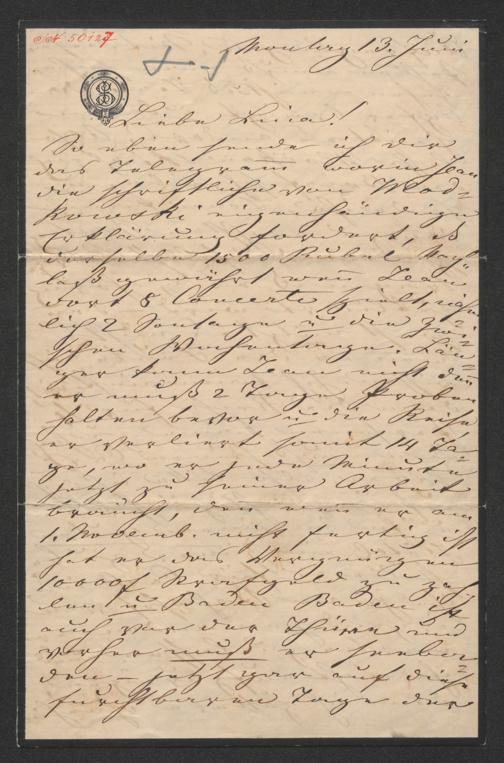 JN 50127
Montag 13. Juni
Liebe Lina!
So eben sende ich dir
das Telegram̄ worin Jean
die schriftliche von Wlad-
kowski eigenhändige
Erklärung fordert, daß
derselbe 1500 Rubel
laß gewährt wen̄ Jean
dort 8 Concerte spielt, näm
lich 2 Sontage u die zwi-
schen Wochentage. Län-
ger kann Jean nicht den̄
er muß 2 Tage Proben
halten bevor u die Reise
er verliert somit 14 Ta-
ge, wo er jede Minute
jetzt zu seiner Arbeit
braucht, den wen̄ er am
1. Novemb. nicht fertig ist
hat er das Vergnügen
10000 f Strafgeld zu zah-
len u Baden Baden ist
auch vor der Thüre und
vorher muß er seeba-
den – jetzt gar auf diese
furchtbaren Tage der